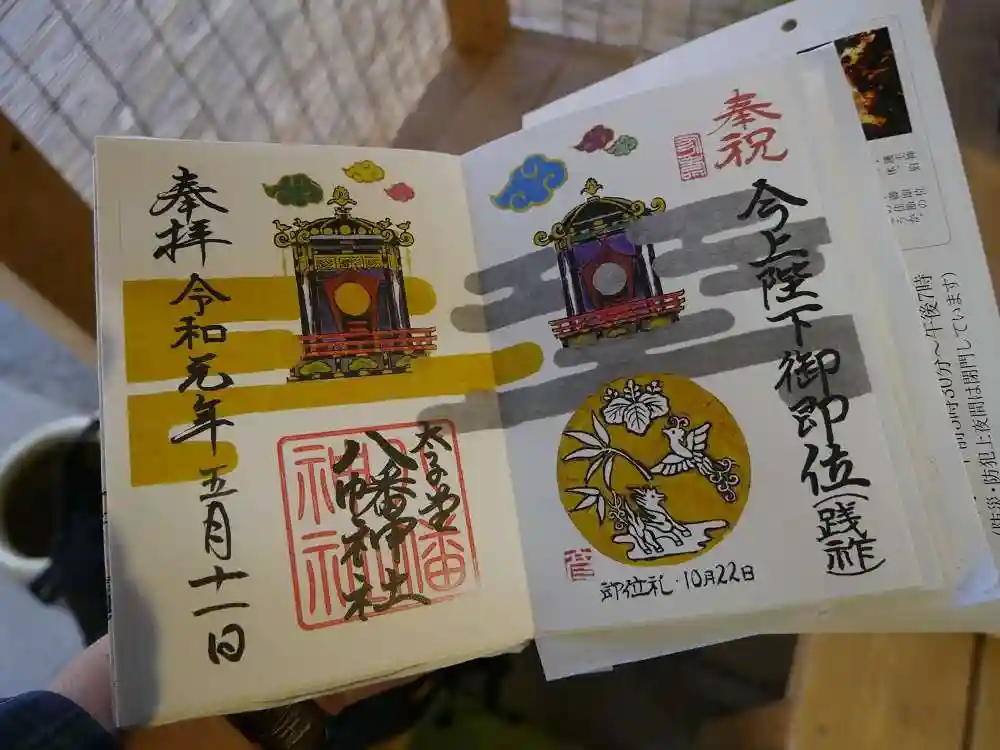 奉拝
令和元年五月十一日
太子堂
八幡神社
奉祝
今上陛下御即位(践祚)
即位礼・10月22日
前5時30分〜午後7時
(防災・防犯上夜間は閉門しています)